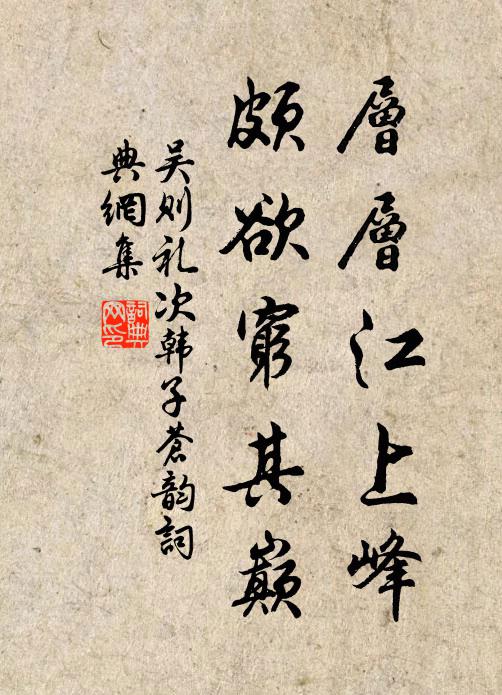 層層江上峰
頗欲窮其巔
吴则礼次韩子苍韵詞
典網集
詞典
网印